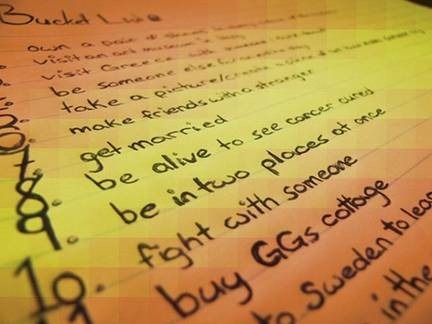 Bucket List
own a pair of
visit an art museum in
visit Greece with someone
be someone else for one day
take a picture/create a piece of
6. make friends with a stranger
7. get married
8. be alive to see cancer cured
9. be in two places at once
10. fight with someone
11 buy GGs cottage
to Sweden to lea
in the